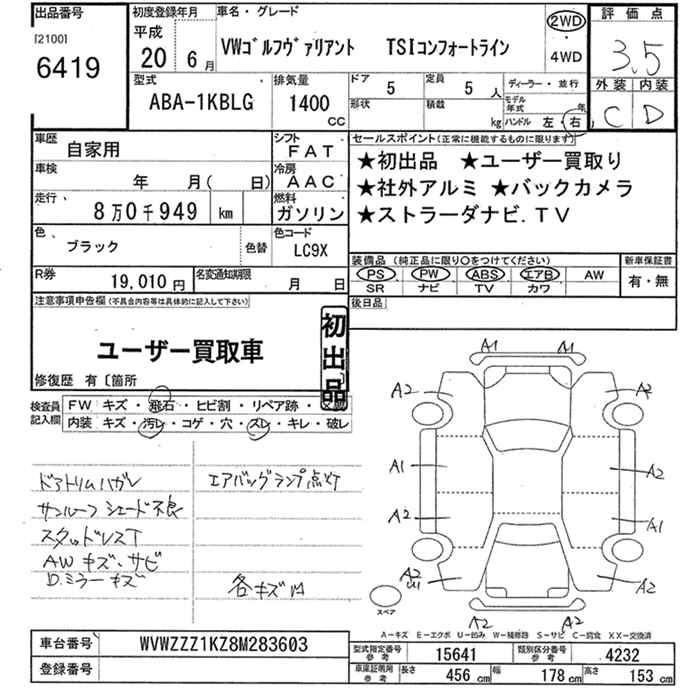 出品番号
[2100]
6419
初度登録年月
平成
20 6月
車名・グレード
VWゴルフヴァリアント TSIコンフォートライン
2WD
・
4WD
評価点
3.5
外装 内装
C D
型式
ABA-1KBLG
排気量
1400
CC
ドア
5
定員
5人
ディーラー・並行
形状
積載
kg
モデル年式 年
ハンドル 左・右
車歴
自家用
シフト
FAT
車検
年 月( 日)
冷房
AAC
走行
8万0千949 km
燃料
ガソリン
色
ブラック
色替
色コード
LC9X
R券
19,010円
名変通知期限
月 日
セールスポイント(正常に機能するものに限ります)
★初出品 ★ユーザー買取り
★社外アルミ ★バックカメラ
★ストラーダナビ.TV
装備品 (純正品に限り○をつけてください)
新車保証書
PS PW ABS エアB AW
SR ナビ TV カワ
有・無
後日品
注意事項申告欄(不具合内容等は具体的に記入して下さい)
ユーザー買取車
初出品
修復歴 有〔箇所
検査員記入欄
FW キズ・飛石・ヒビ割・リペア跡・
内装 キズ・汚レ・コゲ・穴・スレ・キレ・破レ
ドアトリムハガレ
サンルーフシェード不良
スタッドレスT
AWキズ、サビ
D.ミラーキズ
エアバッグランプ点灯
各キズ凹
A1 A1
A2 A2
A1 A2
A2 A1
A2 U1 A2
A2 A2
スペア
A−キズ E−エクボ U−凹み W−補修跡 S−サビ C−腐食 XX−交換済
車台番号
WVWZZZ1KZ8M283603
登録番号
型式指定番号 参考
15641
類別区分番号 参考
4232
車庫証明用 参考
長さ 456 cm 幅 178 cm 高さ 153 cm